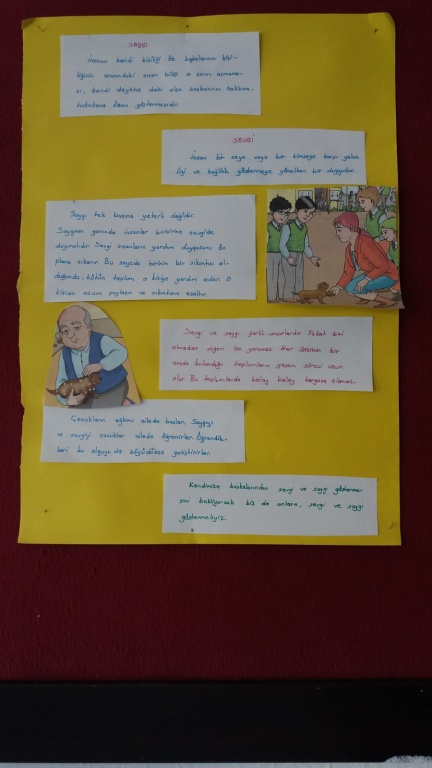 SAYGI
İnsanın kendi kişiliği ile başkalarının kişi-
liğinin arasındaki sınırı bilip o sınırı aşmama-
sı, kendi aleyhine dahi olsa başkasının hakkına,
hukukuna özen göstermesidir.
SEVGİ
İnsanı bir şeye veya bir kimseye karşı yakın
ilgi ve bağlılık göstermeye yönelten bir duygudur.
Saygı tek başına yeterli değildir.
Saygının yanında insanlar birbirine sevgi de
duymalıdır. Sevgi insanların yardım duygusunu ön
plana çıkarır. Bu sayede birinin bir sıkıntısı ol-
duğunda, bütün toplum o kişiye yardım eder. O
kişinin acısını paylaşır ve sıkıntısını azaltır.
Sevgi ve saygı farklı unsurlardır. Fakat biri
olmadan diğeri işe yaramaz. Her ikisinin bir
arada bulunduğu toplumların yaşam süresi uzun
olur. Bu toplumlarda kolay kolay kargaşa çıkmaz.
Çocukların eğitimi ailede başlar. Saygıyı
ve sevgiyi çocuklar ailede öğrenirler. Öğrendik-
leri bu olguyu da büyüdükçe geliştirirler.
Kendimize başkalarından sevgi ve saygı gösterme-
sini bekliyorsak biz de onlara, sevgi ve saygı
göstermeliyiz.